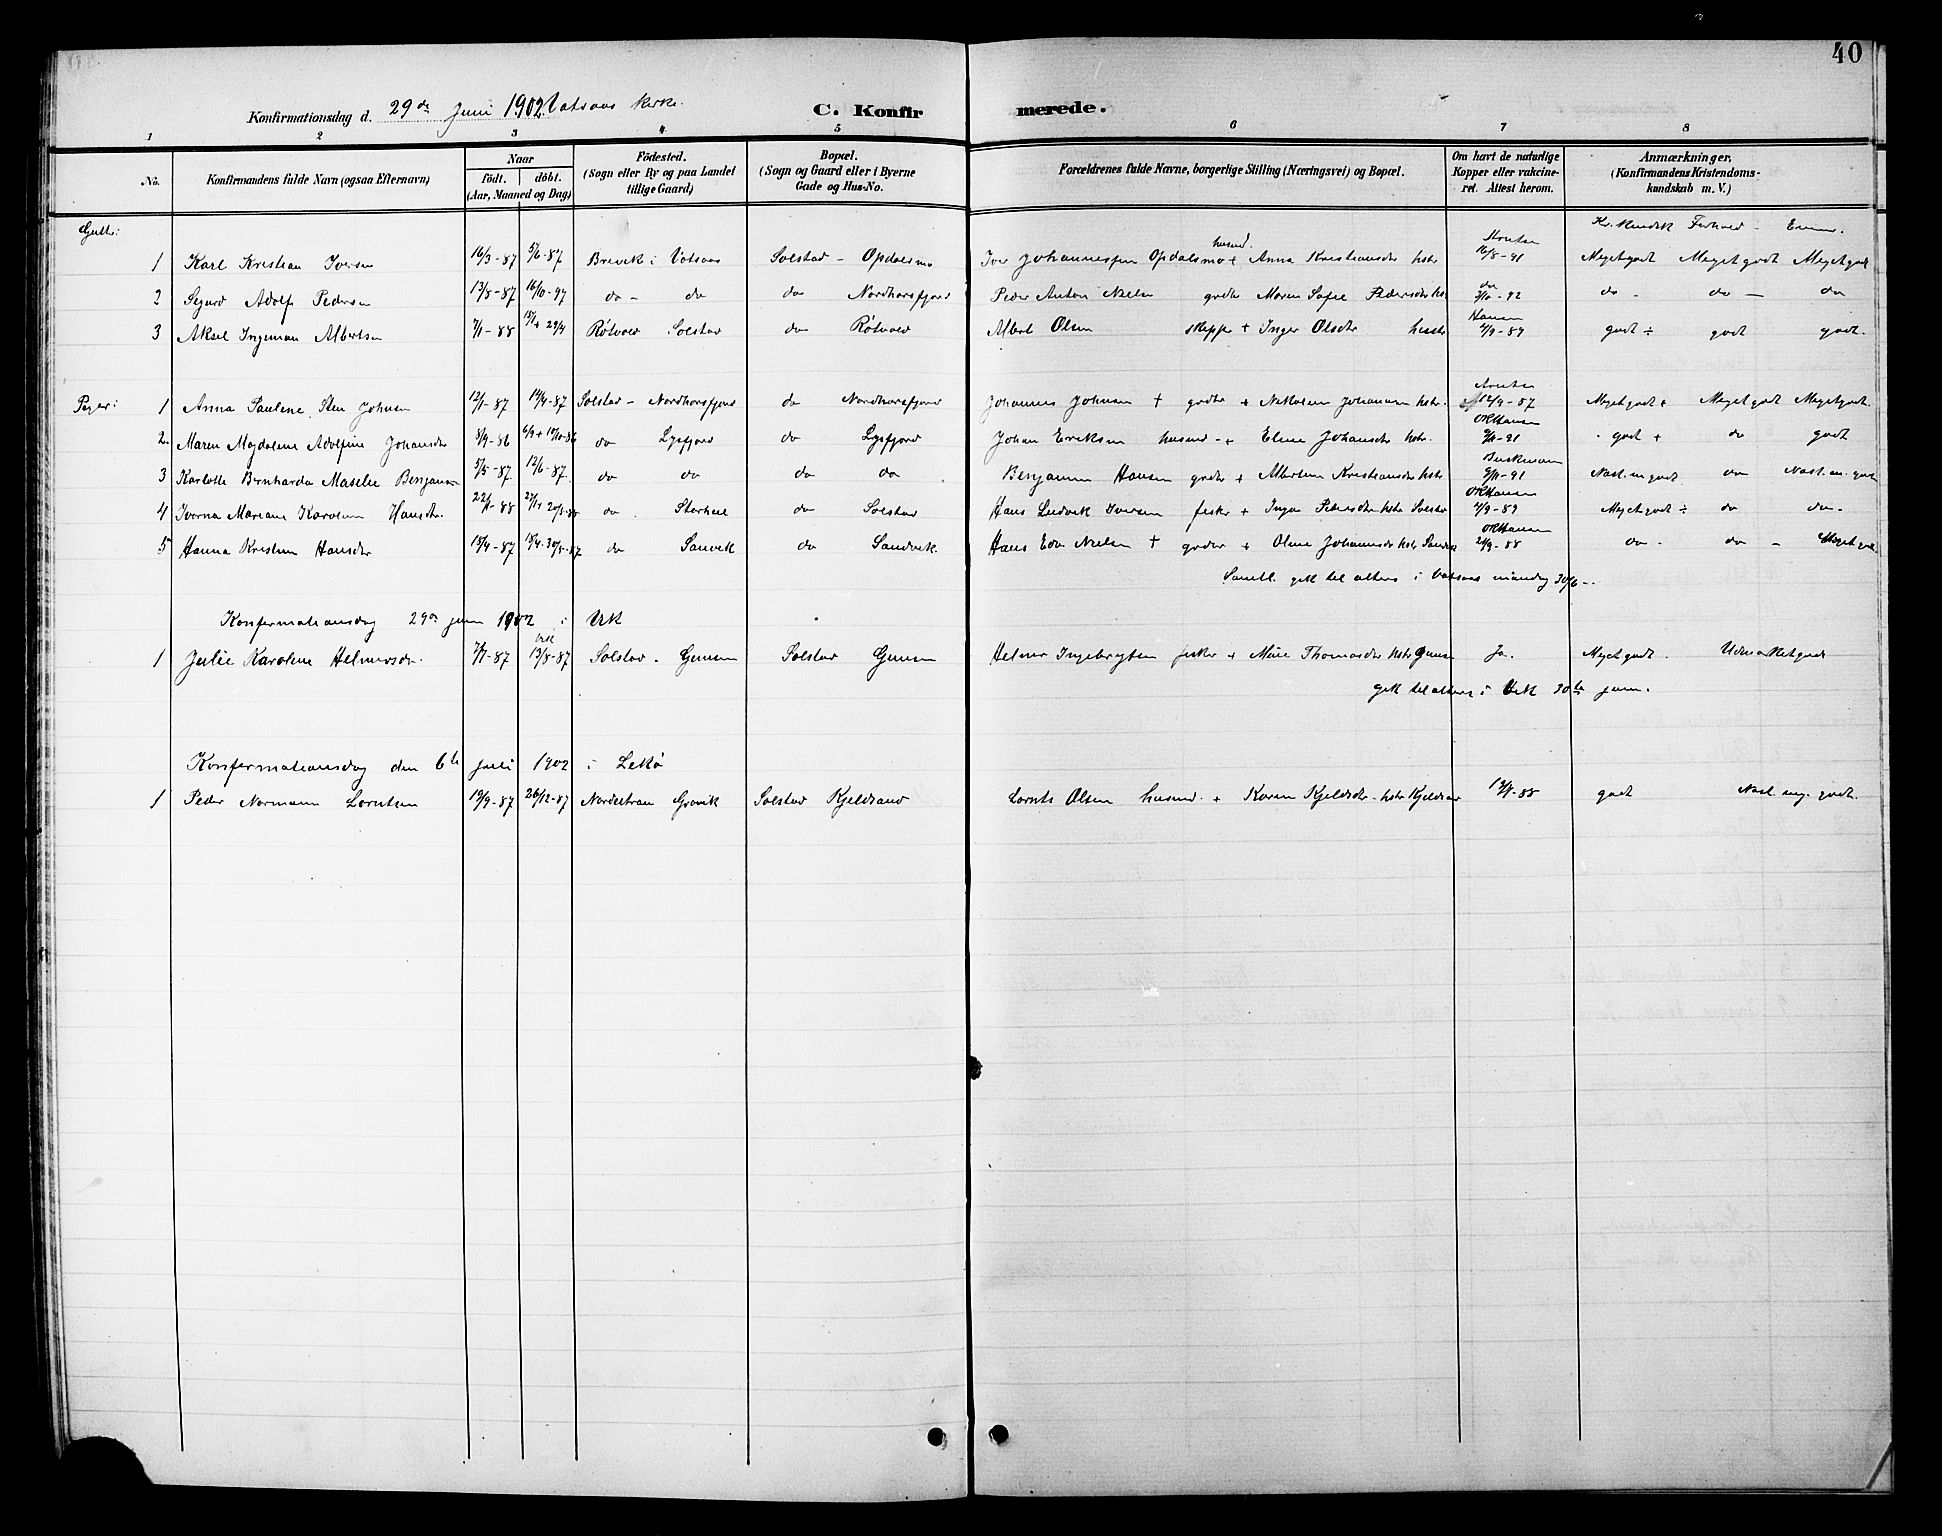 40
Konfirmationsdag d. 29de Juni 1902 Votsaas Kirke.
C. Konfirmerede.
1 2 3 4 5 6 7 8
No. Konfirmandens fulde Navn (ogsaa Efternavn) Naar födt. döbt. (Aar, Maaned og Dag) Födested. (Sogn eller By og paa Landet tillige Gaard) Bopæl. (Sogn og Gaard eller i Byerne Gade og Hus-No. Forældrenes fulde Navne, borgerlige Stilling (Næringsvei) og Bopæl. Om havt de naturlige Kopper eller vakcineret. Attest herom. Anmærkninger, (Konfirmandens Kristendomskundskab m. V.)
Gutter:
Kr. kundsk Forhold - Evner.
1 Karl Kristian Iversen 16/3-87 5/6-87 Brevik i Votsaas Solstad - Opdalsmo Iver Johannessen Opdalsmo husmd. + Anna Kristiansdr hstr 16/8-91 Megetgodt Megetgodt Megetgodt
2 Sigurd Adolf Pedersen 13/8-87 16/10-97 do - do do Nordhorsfjord Peder Anton Nielsen grdbr Maren Sofie Pedersdtr hstr do -92 do - do - do
3 Aksel Ingeman Albertsen 7/1-88 29/4 Røtvold Solstad do Røtvold Albert Olsen skipper + Inger Olsdtr hustr Hansen 4/9-89 godt ÷ godt godt.
Piger:
1 Anna Pauline Sten Johnsen 12/1-87 14/4-87 Solstad - Nordhorsfjord do Nordhorsfjord Johannes Johnsen + grdbr + Nikoline Johannsen hstr. 12/9-87 Megetgodt + Megetgodt Megetgodt.
2 Maren Magdalene Adolfine Johansdtr 3/9-86 6/9 + 10/10-86 do Lysfjord do Lysfjord Johan Eriksen husmd - + Eline Johansdtr hstr. OKHansen 9/11-91 godt + do godt
3 Karlotte Bernharda Maselie Benjamin 5/5-87 12/6-87 do do do do Benjamin Hansen grdbr + Albertine Kristiansdtr hstr 9/11-91 Nast. m. godt do Nast. m. godt
4 Iverna Mariane Karoline Hansdtr. 22/1-88 do. Storheil do Solstad Hans Ludvik Iversen fisker + Inga Pedersdtr hstr Solstad OKHansen 4/9-89 Megetgodt ÷ do do.
5 Hanna Kristine Hansdtr 15/4-87 do Sanvik do Sandvik Hans Edv. Nielsen + grdbr + Oline Johannsdr hstr OKHansen 2/9-88 do. do - Meget godt
Samtl. gik til alters i Votsaas mandag 30/6-.
Konfermationsdag 29de juni 1902 i Vik
1 Julie Karoline Helmersdr. 7/7-87 13/8-87 Solstad. Gimsen Solstad Gimsen Helmer Ingebrigtsen fisker + Marie Thomasdtr hstr Gimsen Ja. Megetgodt. Udmærketgodt
gik til alters i Vik 30te juni.
Konfermationsdag den 6te juli 1902 i Lekø
1 Peder Normann Lorntsen 19/9-87 26/12-87 Nordstran Gravik Solstad Kjeldsand Lornts Olsen husmd. + Karen Kjeldsdtr - hstr Kjeldsand 19/1-88 godt Nast. mg. godt.